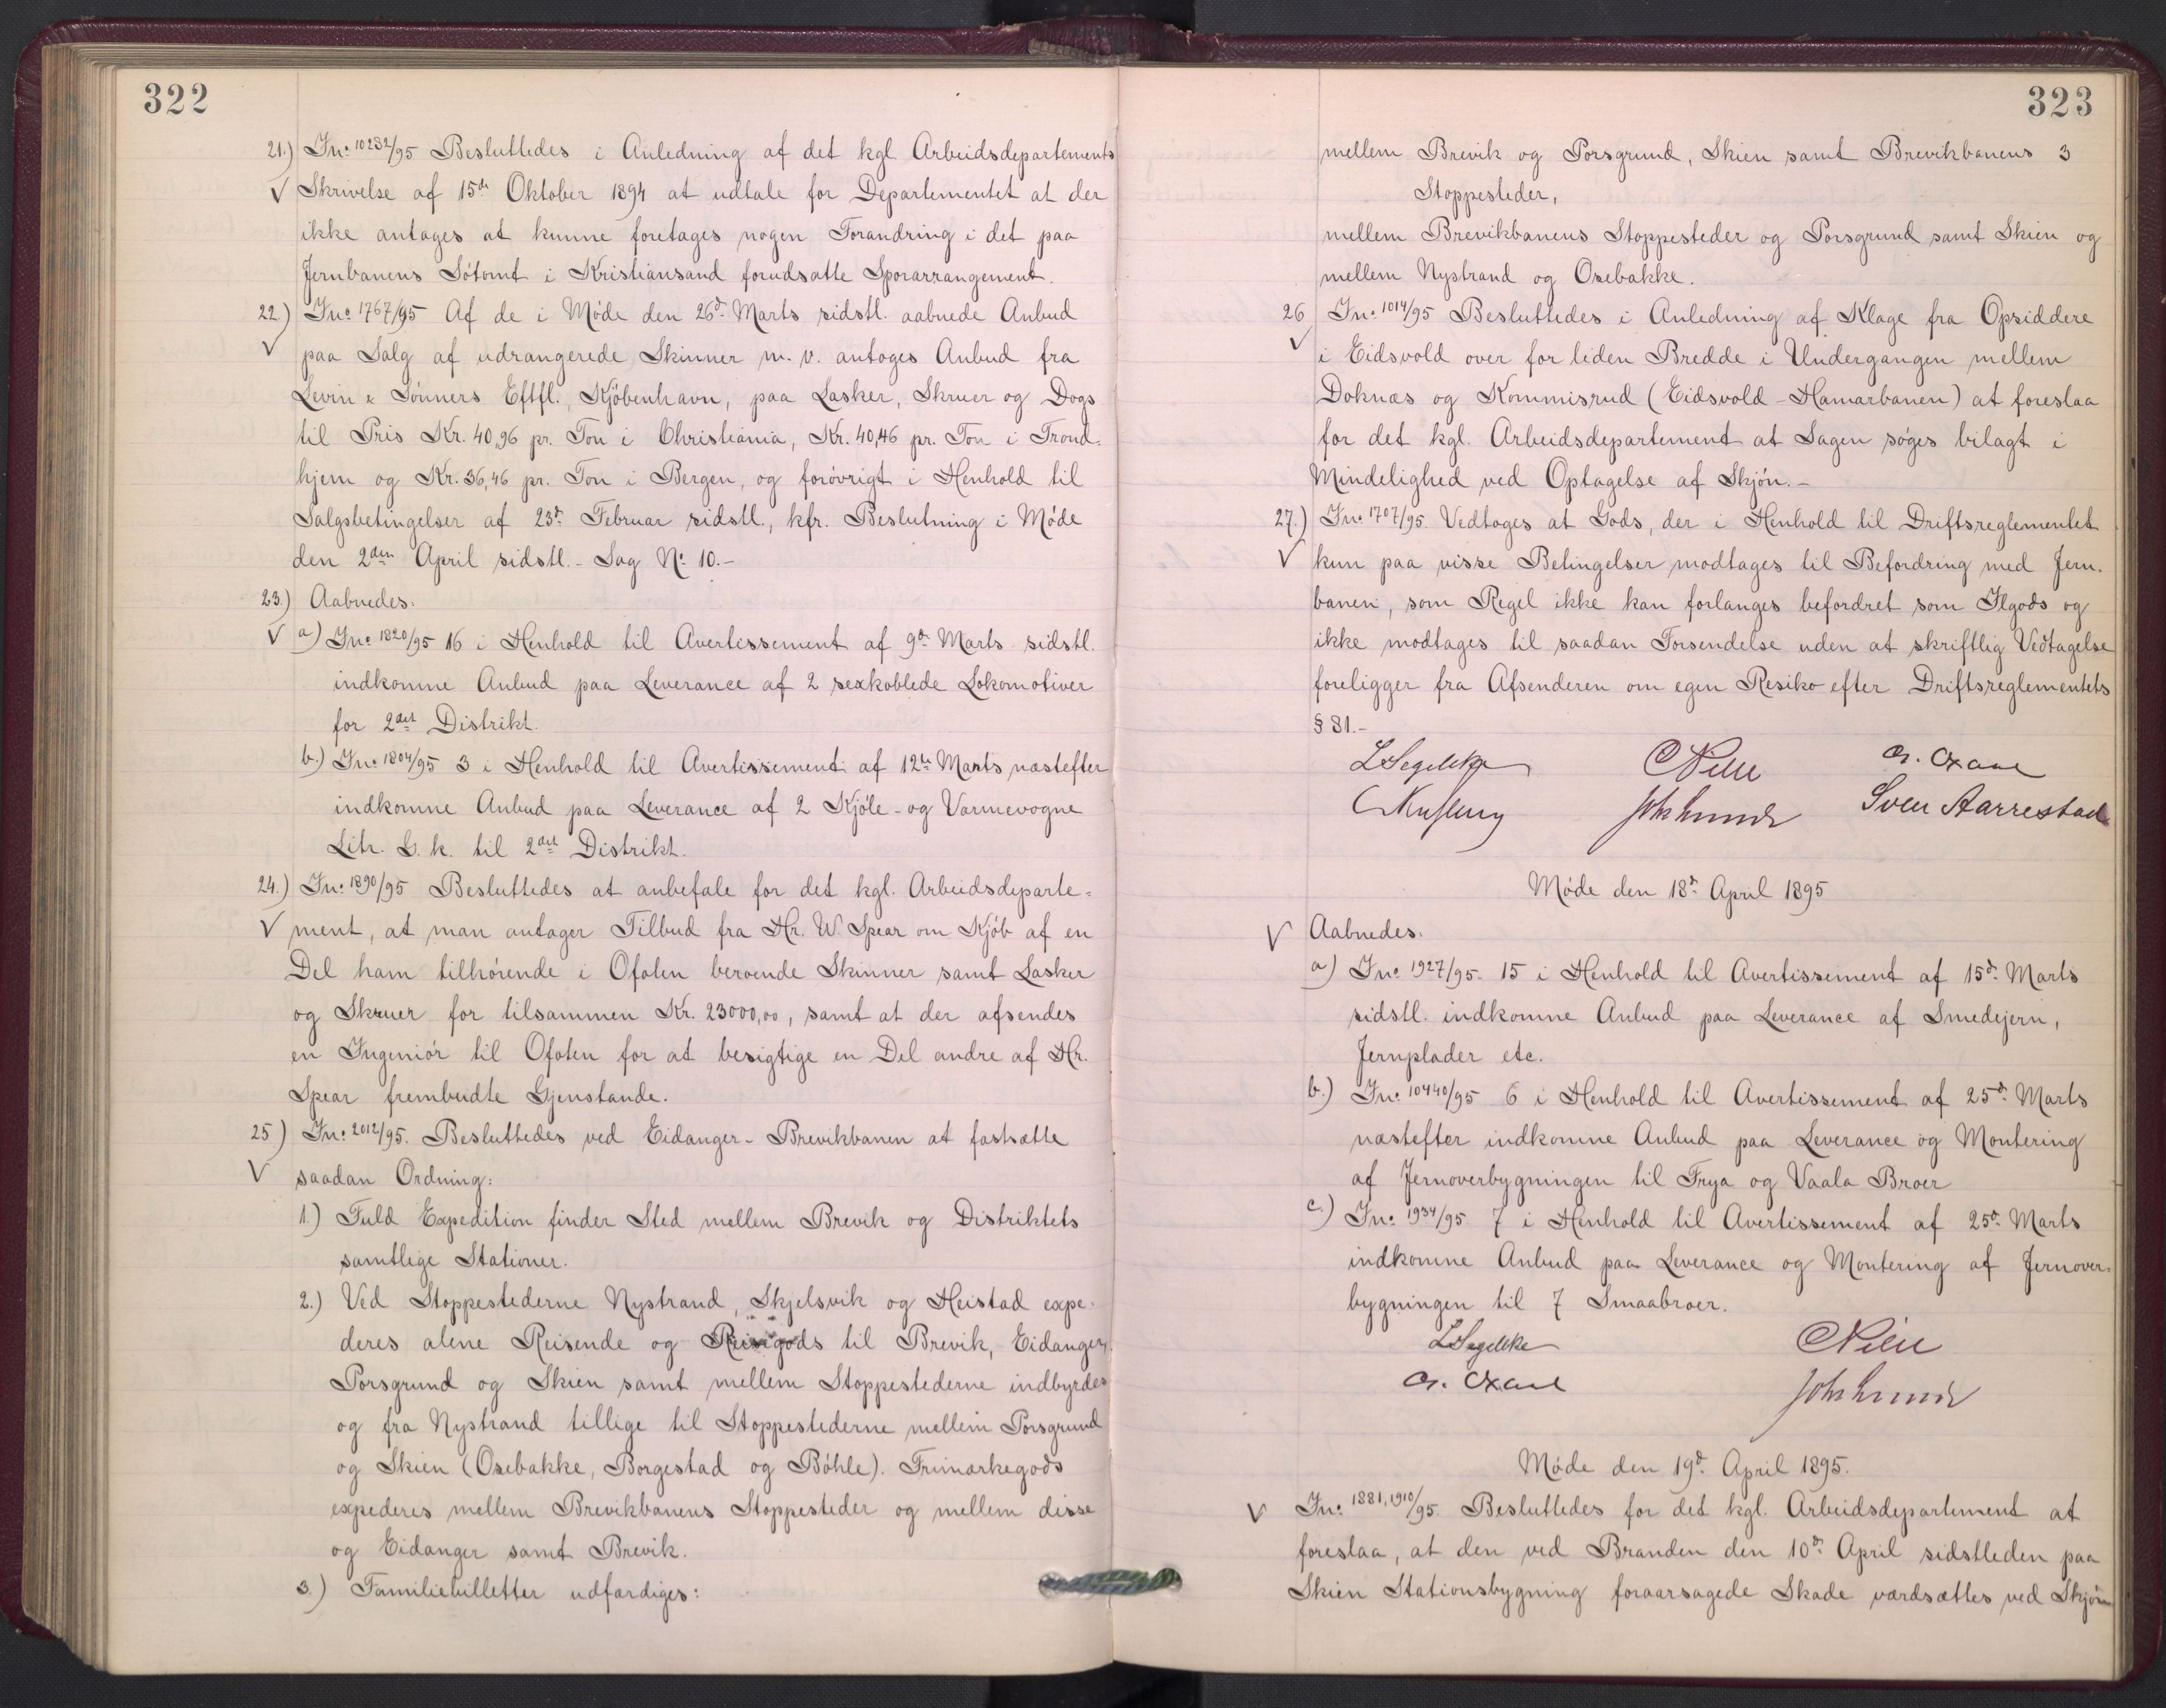 322
21.) Jnº 10232/95 Besluttedes i Anledning af det kgl. Arbeidsdepartements
√ Skrivelse af 15de Oktober 1894 at udtale for Departementet at der
ikke antages at kunne foretages nogen Forandring i det paa
Jernbanens Sótomt i Kristiansand forudsatte Sporarrangement.
22.) Jnº 1767/95 Af de i Móde den 26d. Marts sidstl. aabnede Anbud
√ paa Salg af udrangerede Skinner m. v. antoges Anbud fra
Levin & Sónners Eftfl., Kjóbenhavn, paa Lasker, Skruer og Dogs
til Pris Kr. 40,96 pr. Ton i Christiania, Kr. 40,46 pr. Ton i Trond-
hjem og Kr. 36,46 pr. Ton i Bergen, og foróvrigt i Henhold til
Salgsbetingelser af 23d. Februar sidstl., kfr. Beslutning i Móde
den 2den April sidstl. - Sag Nº 10.-
23.) Aabnedes:
√ a) Jnº 1820/95 16 i Henhold til Avertissement af 9d. Marts sidstl.
indkomne Anbud paa Leverance af 2 sexkoblede Lokomotiver
for 2det Distrikt.
b.) Jnº 1804/95 3 i Henhold til Avertissement af 12te Marts næstefter
indkomne Anbud paa Leverance af 2 Kjóle- og Varmevogne
Litr. G. k. til 2det Distrikt.
24.) Jnº 1890/95 Besluttedes at anbefale for det kgl. Arbeidsdeparte-
√ ment, at man antager Tilbud fra Hr. W. Spear om Kjób af en
Del ham tilhórende i Ofoten beroende Skinner samt Lasker
og Skruer for tilsammen Kr. 23000,00, samt at der afsendes
en Ingeniór til Ofoten for at besigtige en Del andre af Hr.
Spear frembudte Gjenstande.
25) Jnº 2012/95. Besluttedes ved Eidanger-Brevikbanen at fastsætte
√ saadan Ordning:
1.) Fuld Expedition finder Sted mellem Brevik og Distriktets
samtlige Stationer.
2.) Ved Stoppestederne Nystrand, Skjelsvik og Heistad expe-
deres alene Reisende og Reisegods til Brevik, Eidanger,
Porsgrund og Skien samt mellem Stoppestederne indbyrdes
og fra Nystrand tillige til Stoppestederne mellem Porsgrund
og Skien (Osebakke, Borgestad og Bóhle). Frimærkegods
expederes mellem Brevikbanens Stoppesteder og mellem disse
og Eidanger samt Brevik.
3.) Familiebilletter udfærdiges:
323
mellem Brevik og Porsgrund, Skien samt Brevikbanens 3
Stoppesteder,
mellem Brevikbanens Stoppesteder og Porsgrund samt Skien og
mellem Nystrand og Osebakke.
26 Jnº 1014/95 Besluttedes i Anledning af Klage fra Opsiddere
√ i Eidsvold over for liden Bredde i Undergangen mellem
Doknæs og Kommisrud (Eidsvold-Hamarbanen) at foreslaa
for det kgl. Arbeidsdepartement at Sagen sóges bilagt i
Mindelighed ved Optagelse af Skjón.-
27.) Jnº 1707/95. Vedtoges at Gods, der i Henhold til Driftsreglementet
√ kun paa visse Betingelser modtages til Befordring med Jern-
banen, som Regel ikke kan forlanges befordret som Ilgods og
ikke modtages til saadan Forsendelse uden at skriftlig Vedtagelse
foreligger fra Afsenderen om egen Resiko efter Driftsreglementets
§ 31.-
LSegelcke CNielsen
Joh Lunde Sven Aarrestad
Móde den 18d. April 1895
√ Aabnedes:
a) Jnº 1927/95. 15 i Henhold til Avertissement af 15d. Marts
sidstl. indkomne Anbud paa Leverance af Smedejern,
Jernplader etc.
b.) Jnº 10440/95 6 i Henhold til Avertissement af 25d. Marts
næstefter indkomne Anbud paa Leverance og Montering
af Jernoverbygningen til Frya og Vaala Broer
c.) Jnº 1934/95 7 i Henhold til Avertissement af 25d. Marts
indkomne Anbud paa Leverance og Montering af Jernover-
bygningen til 7 Smaabroer.
LSegelcke CNielsen
Joh Lunde
Móde den 19d. April 1895.
√ Jnº 1881, 1910/95. Besluttedes for det kgl. Arbeidsdepartement at
foreslaa, at den ved Branden den 10d. April sidstleden paa
Skien Stationsbygning foraarsagede Skade værdsættes ved Skjón